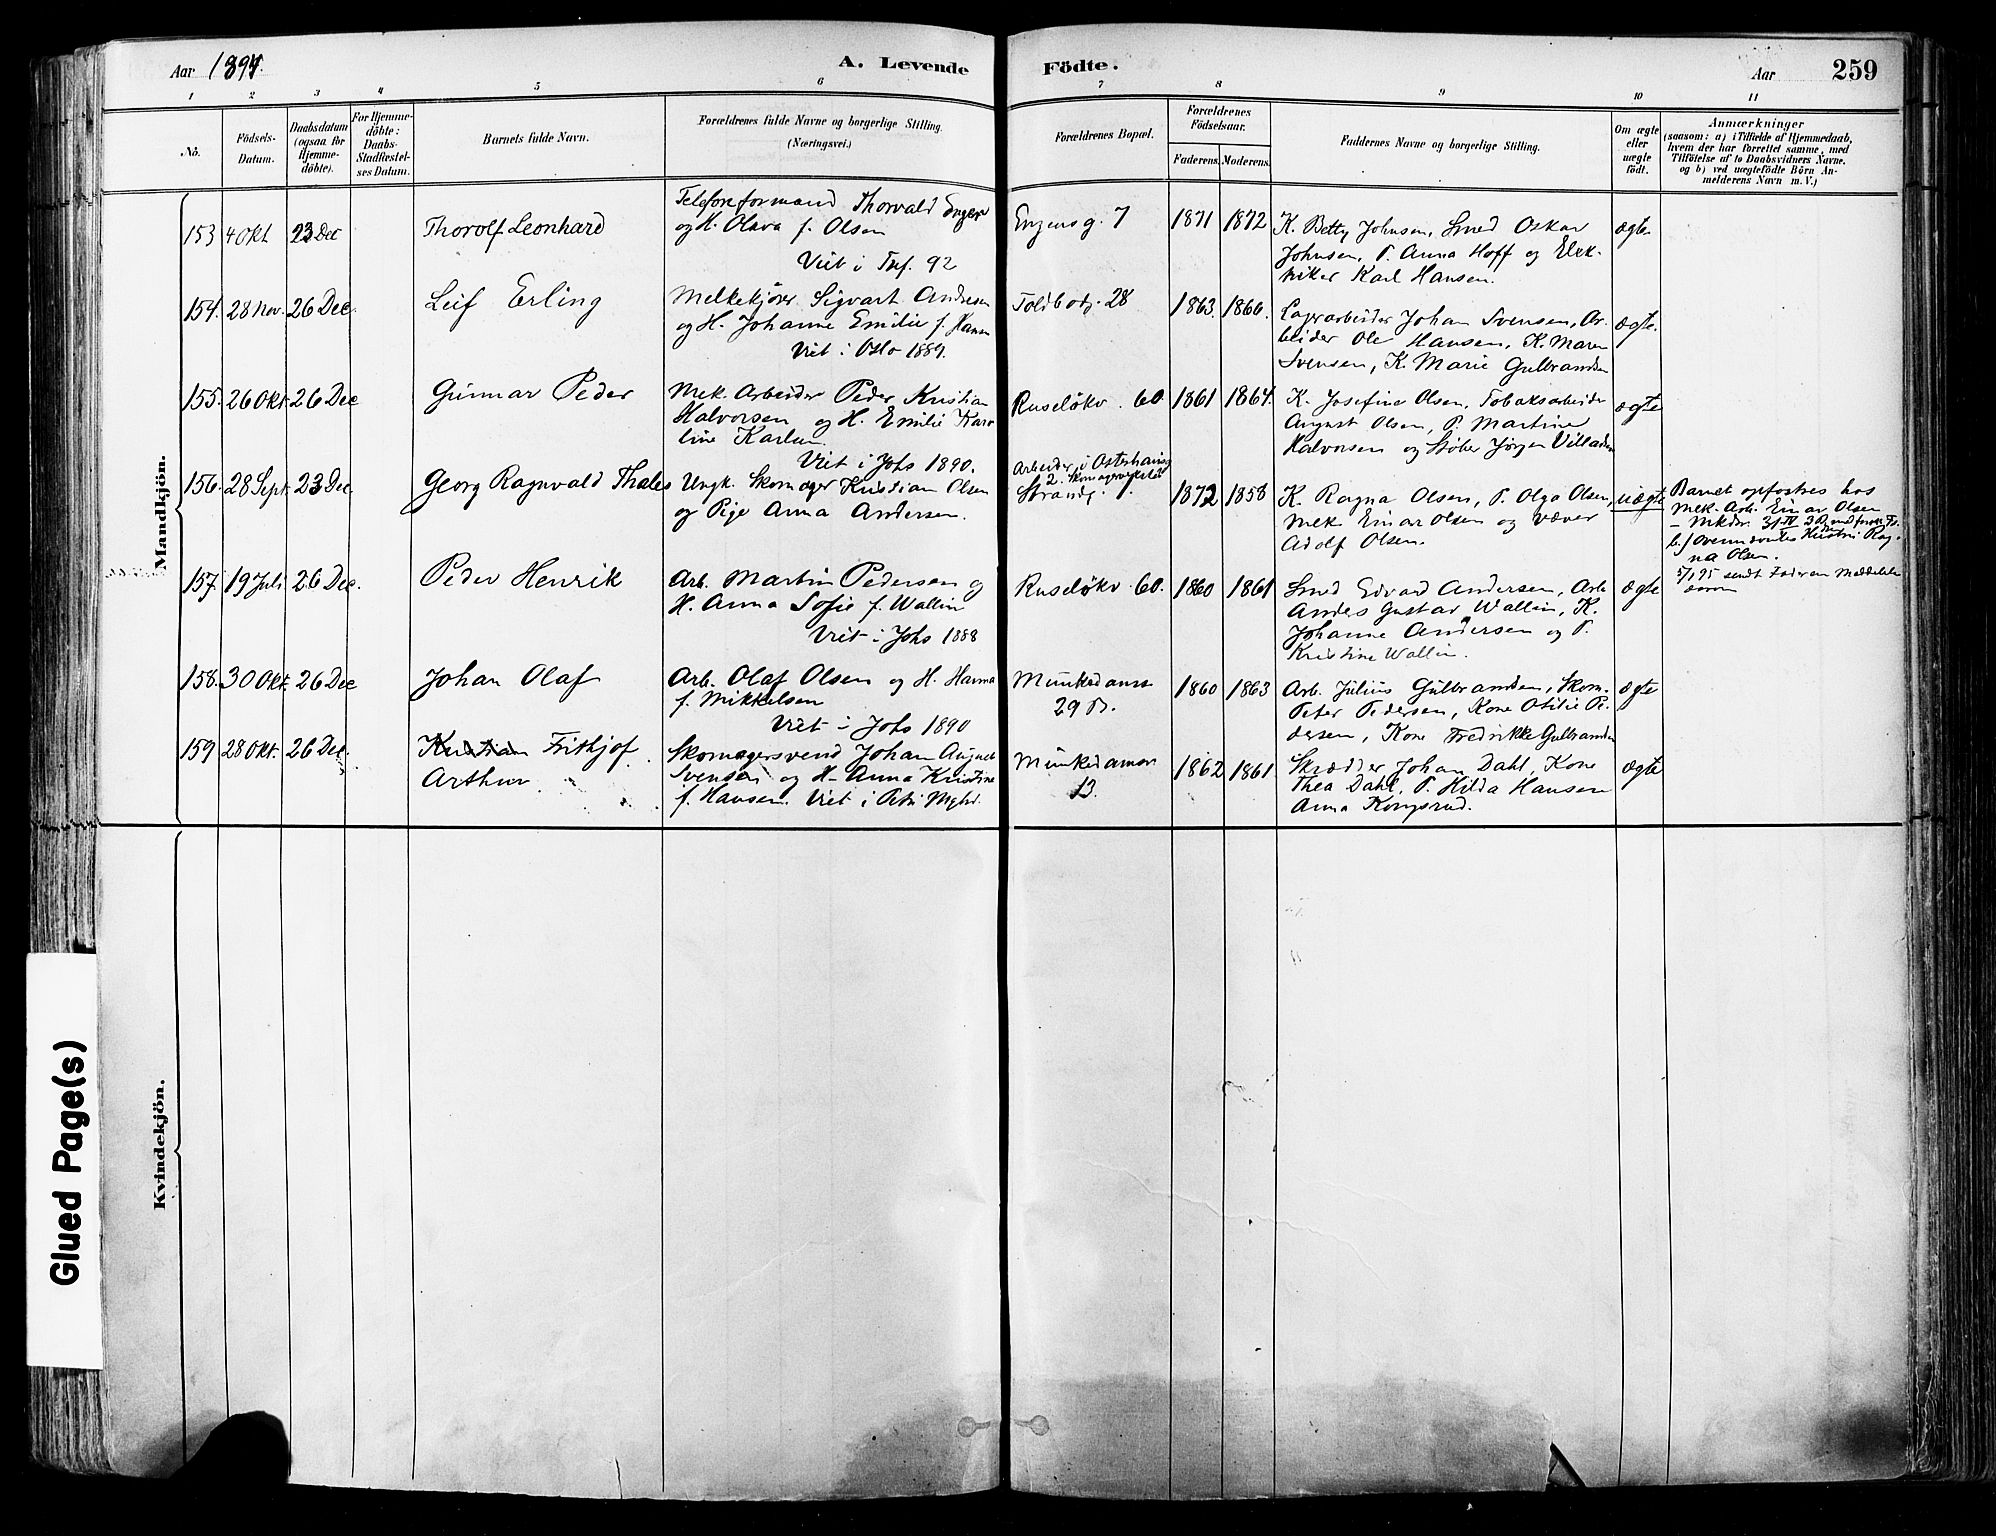 Aar 1894.
A. Levende
Födte.
Aar
259
1 2 3 4 5 6 7 8 9 10 11
No.
Födsels-
Datum.
Daabsdatum
(ogsaa for
Hjemme-
döbte).
For Hjemme-
döbte:
Daabs-
Stadfæstel-
ses Datum.
Barnets fulde Navn.
Forældrenes fulde Navne og borgerlige Stilling.
(Næringsvei.)
Forældrenes Bopæl.
Forældrenes
Födselsaar.
Faderens. Moderens.
Faddernes Navne og borgerlige Stilling.
Om ægte
eller
uægte
födt.
Anmærkninger
(saasom: a) i Tilfælde af Hjemmedaab,
hvem der har forrettet samme, med
Tilföielse af to Daabsvidners Navne.
og b) ved uægtefödte Börn An-
melderens Navn m. V.)
Mandkjön.
153 4 Okt 23 Dec
Thorolf Leonhard
Telefonformand Thorvald Engen
og H. Olava f. Olsen
Viet i Trf. 92
Engensg. 7
1871 1872
K. Betty Johnsen, Smed Oskar
Johnsen, P. Anna Hoff og Elek-
triker Karl Hansen.
ægte
154. 28 Nov. 26 Dec.
Leif Erling
Melkekjører Sigvart Andresen
og H. Johanne Emilie f. Hansen
Viet i Oslo 1889.
Toldbodg. 28
1863. 1866.
Lagerarbeider Johan Svensen, Ar-
beider Ole Hansen, K. Maren
Svensen, K. Marie Gulbrandsen
ægte.
155. 26 Okt. 26 Dec
Gunnar Peder
Mek. Arbeider Peder Kristian
Halvorsen og H. Emilie Karo-
line Karlsen
Viet i Johs 1890.
Ruseløkv. 60.
1861 1864.
K. Josefine Olsen, Tobaksarbeider
August Olsen, P. Martine
Halvorsen og Støber Jørgen Villadsen
ægte
156. 28 Sept. 23 Dec.
Georg Ragnvald Thales
Ungk. Skomager Kristian Olsen
og Pige Anna Andersen.
Arbeider i Osterhausg
2. Skomagerverksted
Strandg. 1.
1872 1858
K. Ragna Olsen, P. Olga Olsen,
Mek. Einar Olsen og Væver
Adolf Olsen.
uægte
Barnet opfostres hos
Mek. Arb. Einar Olsen
b./ Ovennævntes Hustru Rag-
na Olsen.
5/1 95 sendt Faderen Meddelelse
157. 19 Juli 26 Dec.
Peder Henrik
Arb. Martin Pedersen og
H. Anna Sofie f. Wallin
Viet i Johs 1888
Ruseløkv. 60.
1860 1861
Smed Edvard Andersen, Arb.
Andes Gustav Wallin, K.
Johanne Andersen og P.
Kristine Wallin.
ægte
158. 30 Okt. 26 Dec
Johan Olaf
Arb. Olaf Olsen og H. Hanna
f. Mikkelsen
Viet i Johs 1890
Munkedamsv
29 B.
1860 1863
Arb. Julius Gulbrandsen, Skom.
Peter Pedersen, Kone Otilie Pe-
dersen, Kone Fredrikke Gulbrandsen
ægte
159 28 Okt. 26 Dec.
Kristian Frithjof
Arthur
Skomagersvend Johan August
Svensen og H. Anna Kristine
f. Hansen. Viet i Petri Mghd.
Munkedamsv
13.
1862 1861.
Skrædder Johan Dahl, Kone
Thea Dahl, P. Hilda Hansen
Anna Kongsrud.
ægte
Kvindekjön.
Glued Page(s)